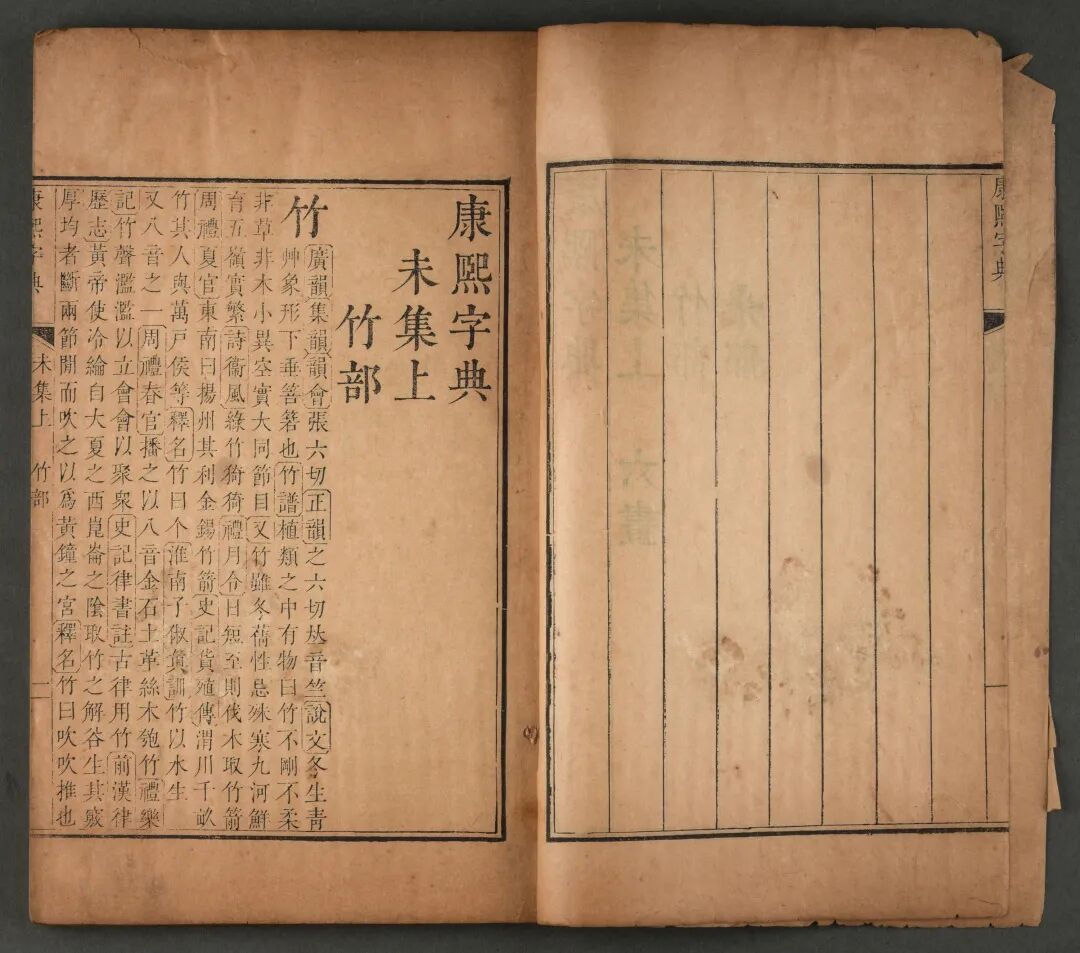 康熙字典
康熙字典
未集上
竹部
竹 廣韻集韻韻會張六切正韻之六切𠀤音竺說文冬生青
艸象形下垂箁箬也竹譜植類之中有物曰竹不剛不柔
非草非木小異空實大同節目又竹雖冬蒨性忌殊寒九河鮮
育五嶺實繁詩衞風綠竹猗猗禮月令日短至則伐木取竹箭
周禮夏官東南曰揚州其利金錫竹箭史記貨殖傳渭川千畝
竹其人與萬戸侯等釋名竹曰个淮南子俶眞訓竹以水生
又八音之一周禮春官播之以八音金石土革絲木匏竹禮樂
記竹聲濫濫以立會會以聚衆史記律書註古律用竹前漢律
歷志黃帝使冷綸自大夏之西崑崙之陰取竹之解谷生其竅
厚均者斷兩節閒而吹之以爲黃鐘之宮釋名竹曰吹吹推也
康熙字典 未集上 竹部 一